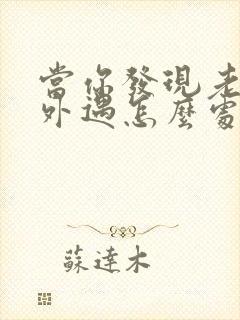 當你發現老
外遇怎麼處
蘇達木